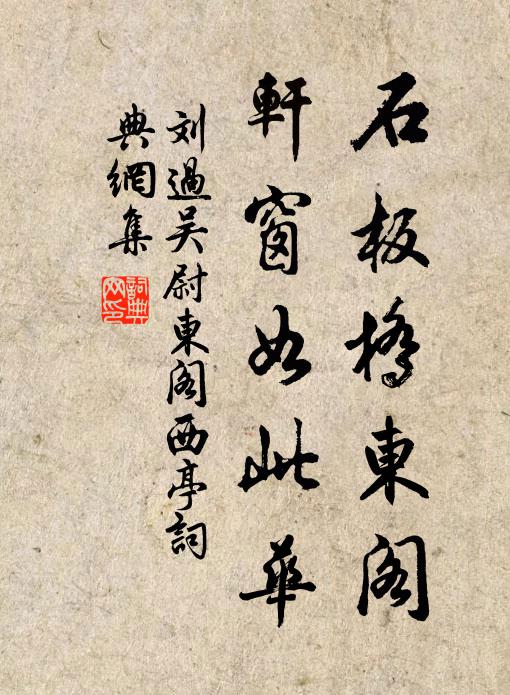 石板橋東閣
軒窗如此華
刘過吴尉東閣西亭詞
典網集
詞典
网印